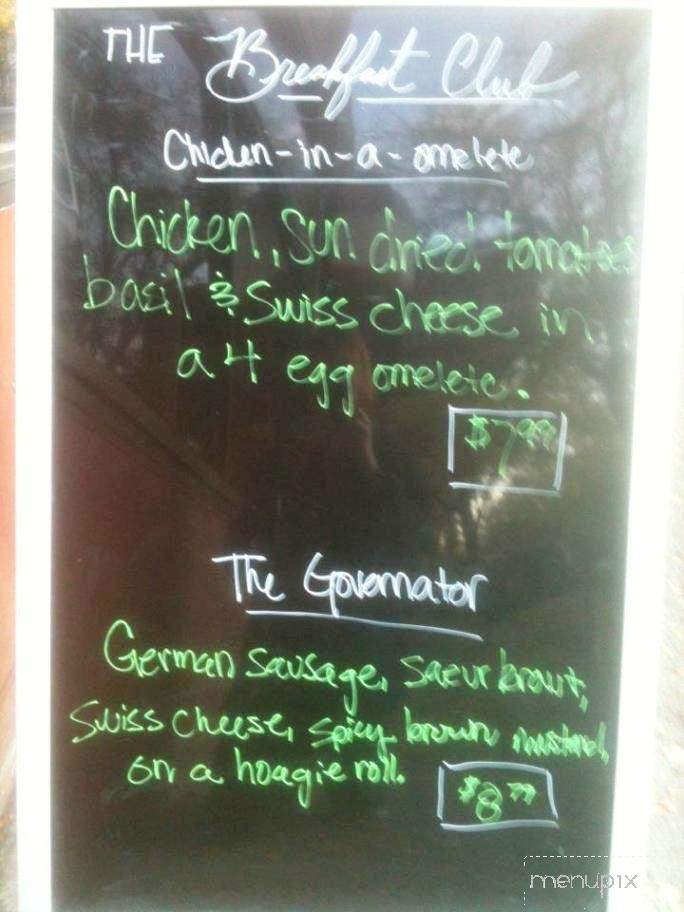 THE Breakfast Club
Chicken-in-a-omelete
Chicken, Sun dried tomatoes
basil & Swiss cheese in
a 4 egg omelete.
$7.99
The Governator
German sausage, saeur kraut,
Swiss cheese, spicy brown mustard,
on a hoagie roll.
$8.99
menupix